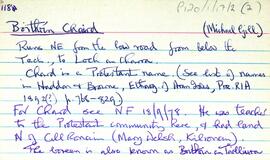 1184
P120/1/7/2 (2)
Bóithrín Chaird (Michael Gill)
Runs NE from the low road from below the
Tech, to Loch an Charra.
Chard is a Protestant name. (See list of names
in Haddon & Browne, Ethnog. of Aran Isles, Proc. RIA
pp. 768-829)
For Chard see NF 18/9/78. He was teacher
to the Protestant community here, & had land
N of Cill Rónáin (Mary
The boreen is also known as Bóithrín an